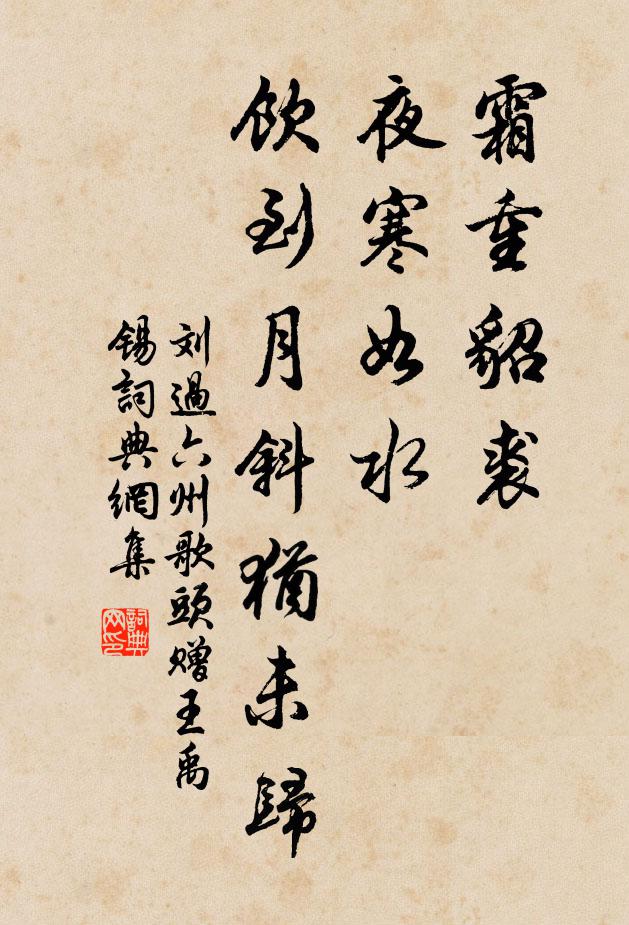 霜重貂裘
夜寒如水
饮到月斜犹未歸
刘過六州歌頭赠王禹
锡詞典網集
詞典网印